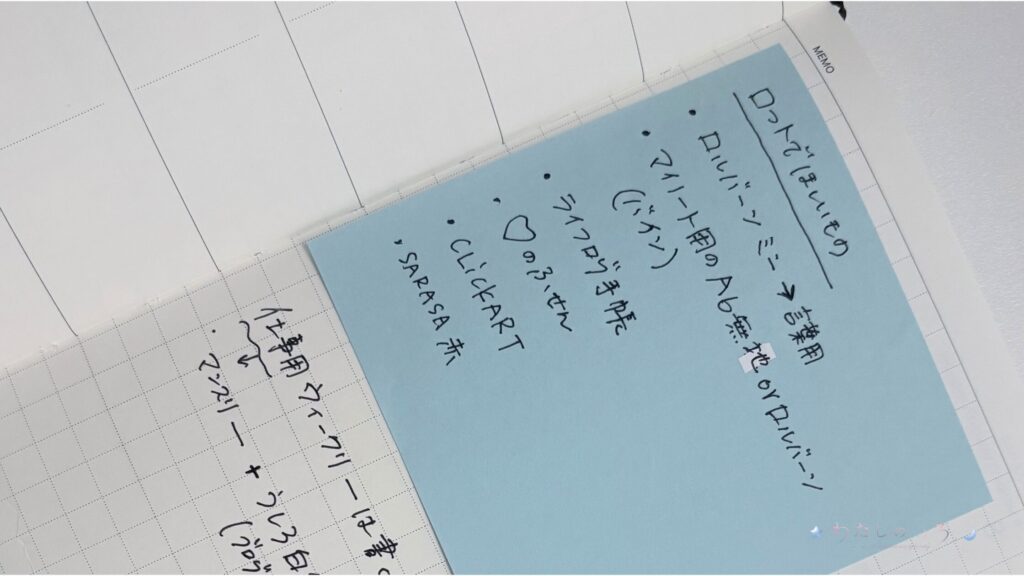 MEMO
ロフトでほしいもの
・ロルバーン ミニ→言葉用
・マイノート用のA6無地orロルバーン
(バイン)
・ライフログ手帳
・♡のふせん
・CLiCKART
・SARASA 赤
仕事用 ウィークリーは書
・マンスリー + うしろ白
(ブログ
わたしの